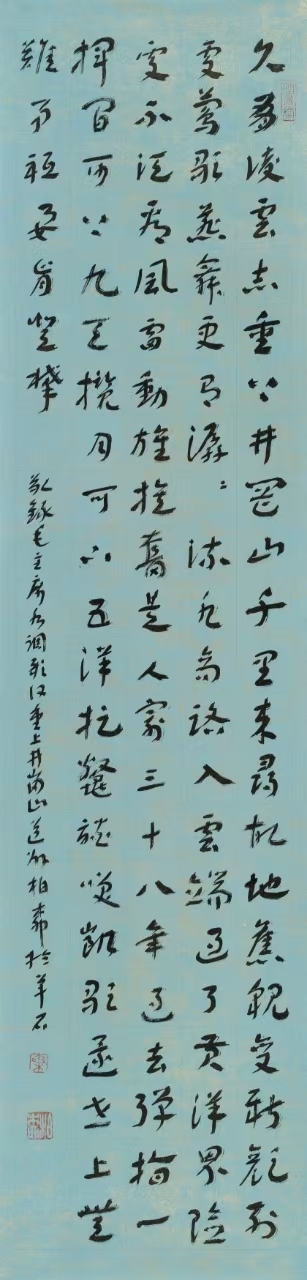 久有凌雲志重上井岡山千里來尋故地舊貌變新顏到
處鶯歌燕舞更有潺〻流水高路入雲端過了黃洋界險
處不須看風雷動旌旗奮是人寰三十八年過去彈指一
揮間可上九天攬月可下五洋捉鱉談笑凱歌還世上無
難事祇要肯登攀
敬錄毛主席水調歌頭重上井崗山 柏 於羊石